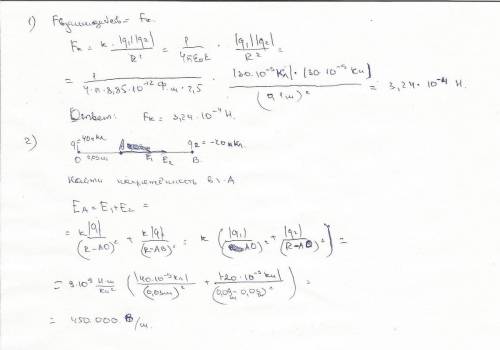 1) Fвзаимодейств = Fк.
Fк = k · |q1||q2| / R² = 1 / 4πε0ε · |q1||q2| / R² =
= 1 / 4·π·8,85·10⁻¹² Ф·м·2,5 · |30·10⁻⁹Кл|·|30·10⁻⁹Кл| / (0,1м)² = 3,24·10⁻⁴ Н.
Ответ: Fк = 3,24·10⁻⁴ Н.
2) q1=40нКл A q2=-20нКл.
O 0,03м E1 E2 B.
Найти напряжённость в т. A
EA = E1+E2 =
= k|q| / (R-AO)² + k|q| / (R-AB)² = k ( |q1| / (AO)² + |q2| / (R-AO)² ) =
= 9·10⁹ Н·м / Кл² ( |40·10⁻⁹Кл| / (0,03м)² + |-20·10⁻⁹Кл| / ) =
= 450.000 В/м.